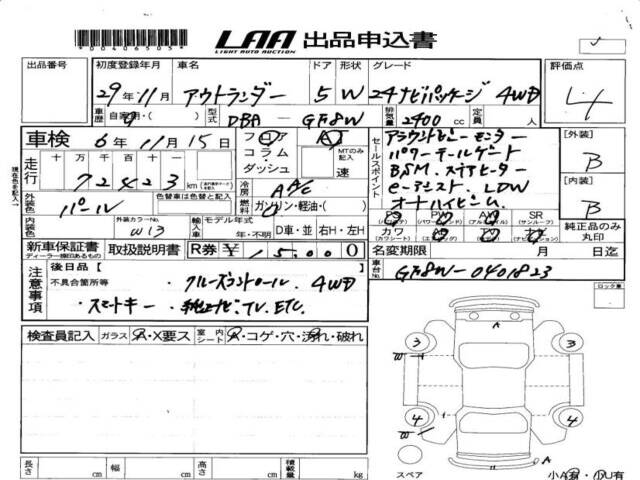 *00406505*
LAA 出品申込書
LIGHT AUTO AUCTION
出品番号 初度登録年月 車名 ドア 形状 グレード 評価点
29年11月 アウトランダー 5 W 24ナビパッケージ 4WD 4
車歴 自家用・( ) 型式 DBA-GF8W 排気量 2400 cc 定員 人
車検 6年11月15日 フロア AT
コラム MTのみ記入
ダッシュ 速
走行 十万 万 千 百 十 一
72423 km
冷房 AAC
外装色 パール 色替車は色替と記入 燃料 ガソリン・軽油・( )
内装色 外装カラーNo W13 輸入車 モデル年式 年・不明 D車・並 右H・左H
セールスポイント
アラウンドビューモニター
パワーテールゲート
BSM. ステアヒーター
e-アシスト. LDW
オートハイビーム.
PS PW AW SR
カワ エアB TV ナビ
純正品のみ丸印
[外装] B
[内装] B
新車保証書 取扱説明書 R券 ¥ 15,000
ディーラー捺印あるもの
名変期限 月 日迄
車台No. GF8W-0401823
注意事項 後日品 [ ]
不具合箇所等 ・クルーズコントロール. 4WD
・スマートキー ・純正ナビ. TV. ETC.
ロック番
検査員記入 ガラス A・X要ス 室内シート A・コゲ・穴・汚れ・破れ
A
3 3
W
4 4
W
スペア A
小A有・小U有
長さ cm 幅 cm 高さ cm 積載量 kg
現在色を記入→